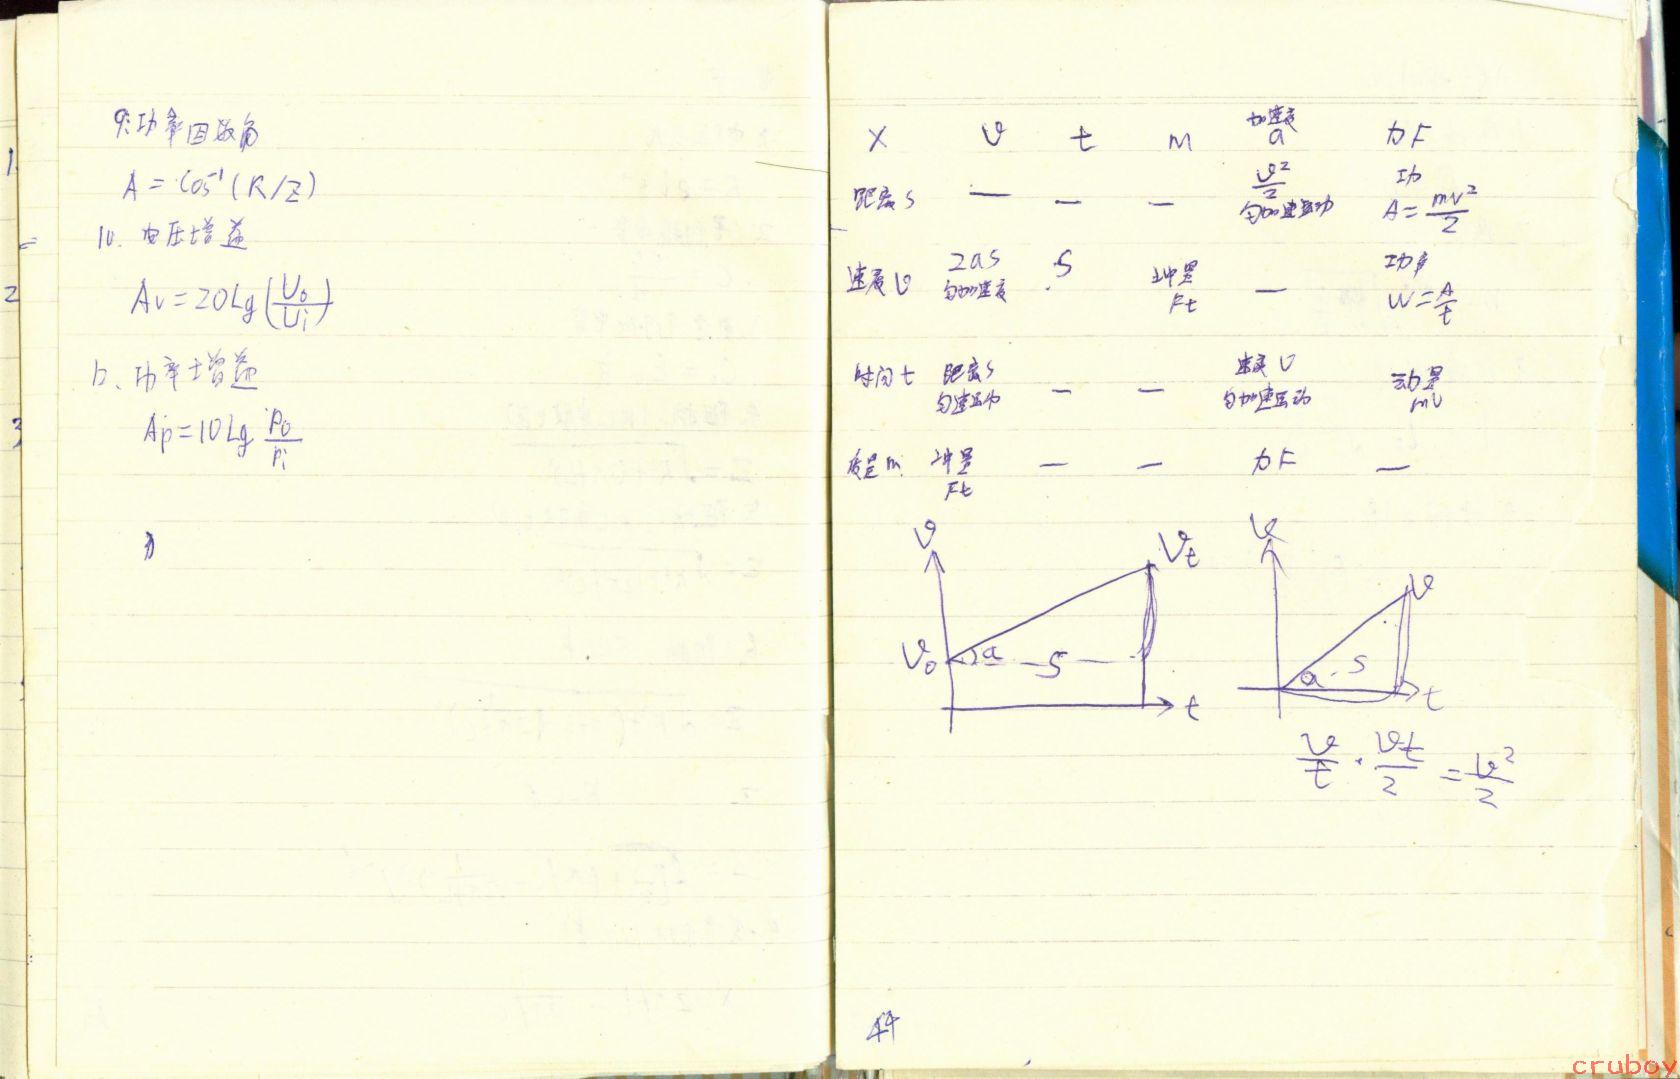 9.功率因数角
A = Cos⁻¹(R/Z)
10. 电压增益
Av = 20Lg(Uo/Ui)
功率增益
Ap = 10Lg Po/Pi
1
2
3
X v t m 加速度a 力F
距离S — — — v²/2 匀加速运动 功 A = mv²/2
速度v 2aS 匀加速度 S 冲量 Ft — 功率 W = A/t
时间t 距离S 匀速运动 — — 速度v 匀加速运动 动量 mv
质量m 冲量 Ft — — 力F —
v
Vt
Vo a S
t
v
v
a S
t
v/t · vt/2 = v²/2
44
cruboy